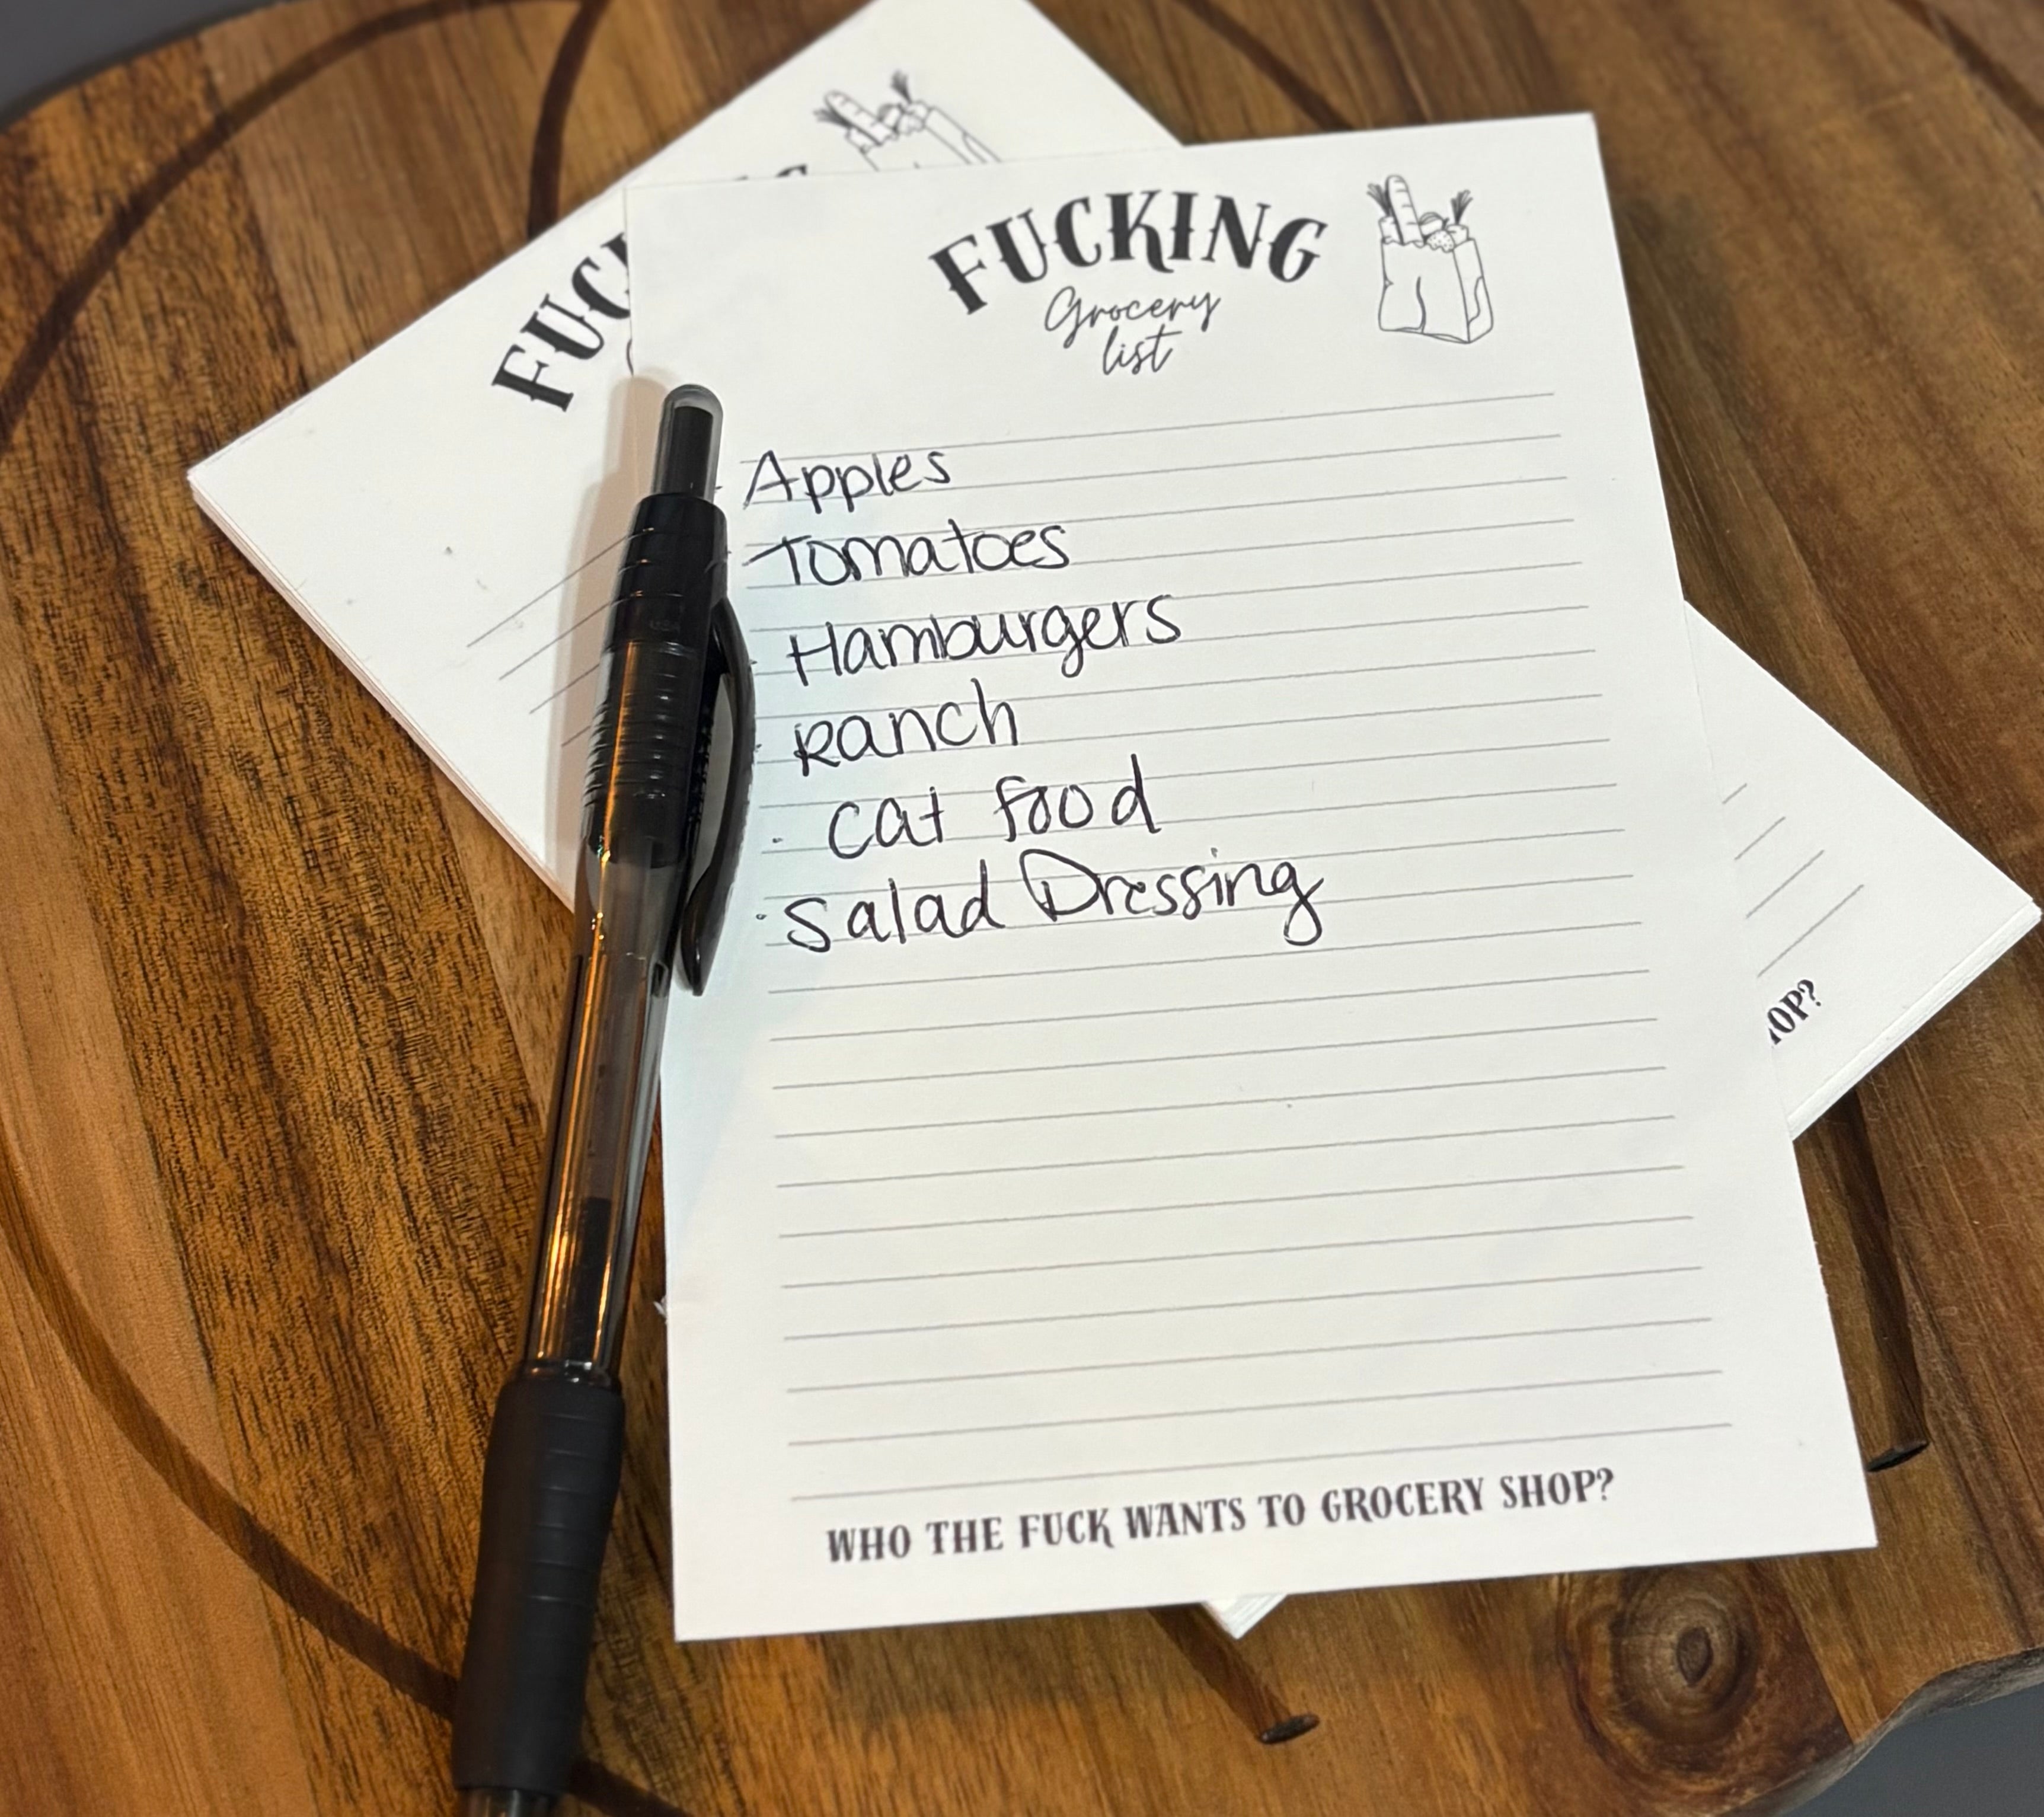 FUCKING
Grocery
list
Apples
Tomatoes
Hamburgers
Ranch
Cat food
Salad Dressing
WHO THE FUCK WANTS TO GROCERY SHOP?
FUC
OP?